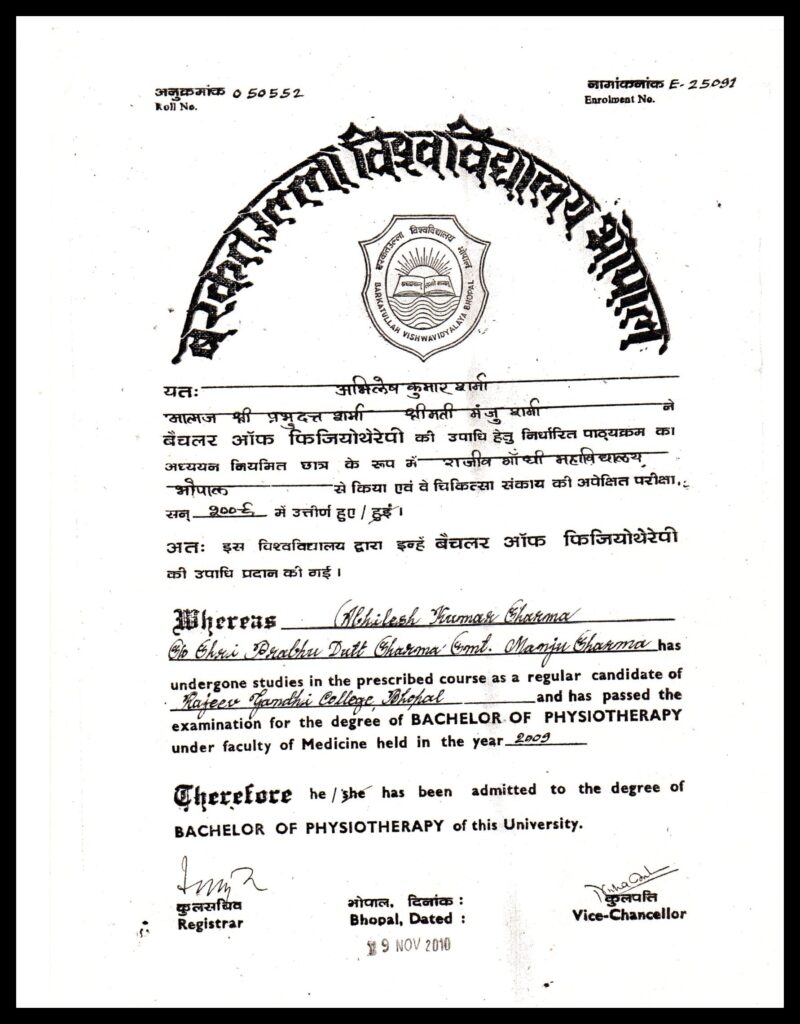 अनुक्रमांक 050552
Roll No.
नामांकनांक E-25091
Enrolment No.
बरकतउल्ला विश्वविद्यालय भोपाल
बरकतउल्ला विश्वविद्यालय भोपाल
BARKATULLAH VISHWAVIDYALAYA BHOPAL
यतः अभिलेष कुमार शर्मा
आत्मज श्री प्रभुदत्त शर्मा श्रीमती मंजु शर्मा ने
बैचलर ऑफ फिजियोथेरेपी की उपाधि हेतु निर्धारित पाठ्यक्रम का
अध्ययन नियमित छात्र के रूप में राजीव गाँधी महाविद्यालय
भोपाल से किया एवं वे चिकित्सा संकाय की अपेक्षित परीक्षा,
सन् २००९ में उत्तीर्ण हुए / हुई ।
अतः इस विश्वविद्यालय द्वारा इन्हें बैचलर ऑफ फिजियोथेरेपी
की उपाधि प्रदान की गई ।
Whereas Abhilesh Kumar Sharma
S/o Shri Prabhu Dutt Sharma Smt. Manju Sharma has
undergone studies in the prescribed course as a regular candidate of
Rajeev Gandhi College, Bhopal and has passed the
examination for the degree of BACHELOR OF PHYSIOTHERAPY
under faculty of Medicine held in the year 2009
Therefore he / she has been admitted to the degree of
BACHELOR OF PHYSIOTHERAPY of this University.
कुलसचिव
Registrar
भोपाल, दिनांक :
Bhopal, Dated :
9 NOV 2010
कुलपति
Vice-Chancellor